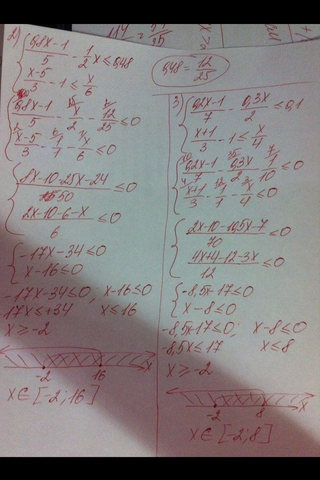 2) { (0,8x-1)/5 - 1/2 x ≤ 0,48
(x-5)/3 - 1 ≤ x/6
{ (0,8x-1)/5 - x/2 - 12/25 ≤ 0
(x-5)/3 - 1/1 - x/6 ≤ 0
{ (8x-10-25x-24)/50 ≤ 0
(2x-10-6-x)/6 ≤ 0
{ -17x-34≤0
x-16≤0
-17x-34≤0, x-16≤0
17x≤+34 x≤16
x≥-2
-2 16 x
x∈[-2;16]
0,48 = 12/25
3) { (0,2x-1)/7 - 0,3x/2 ≤ 0,1
(x+1)/3 - 1 ≤ x/4
{ (0,2x-1)/7 - 0,3x/2 - 1/10 ≤ 0
(x+1)/3 - 1/1 - x/4 ≤ 0
{ (2x-10-10,5x-7)/70 ≤ 0
(4x+4-12-3x)/12 ≤ 0
{ -8,5x-17≤0
x-8≤0
-8,5x-17≤0; x-8≤0
-8,5x≤17 x≤8
x≥-2
-2 8 x
x∈[-2;8]